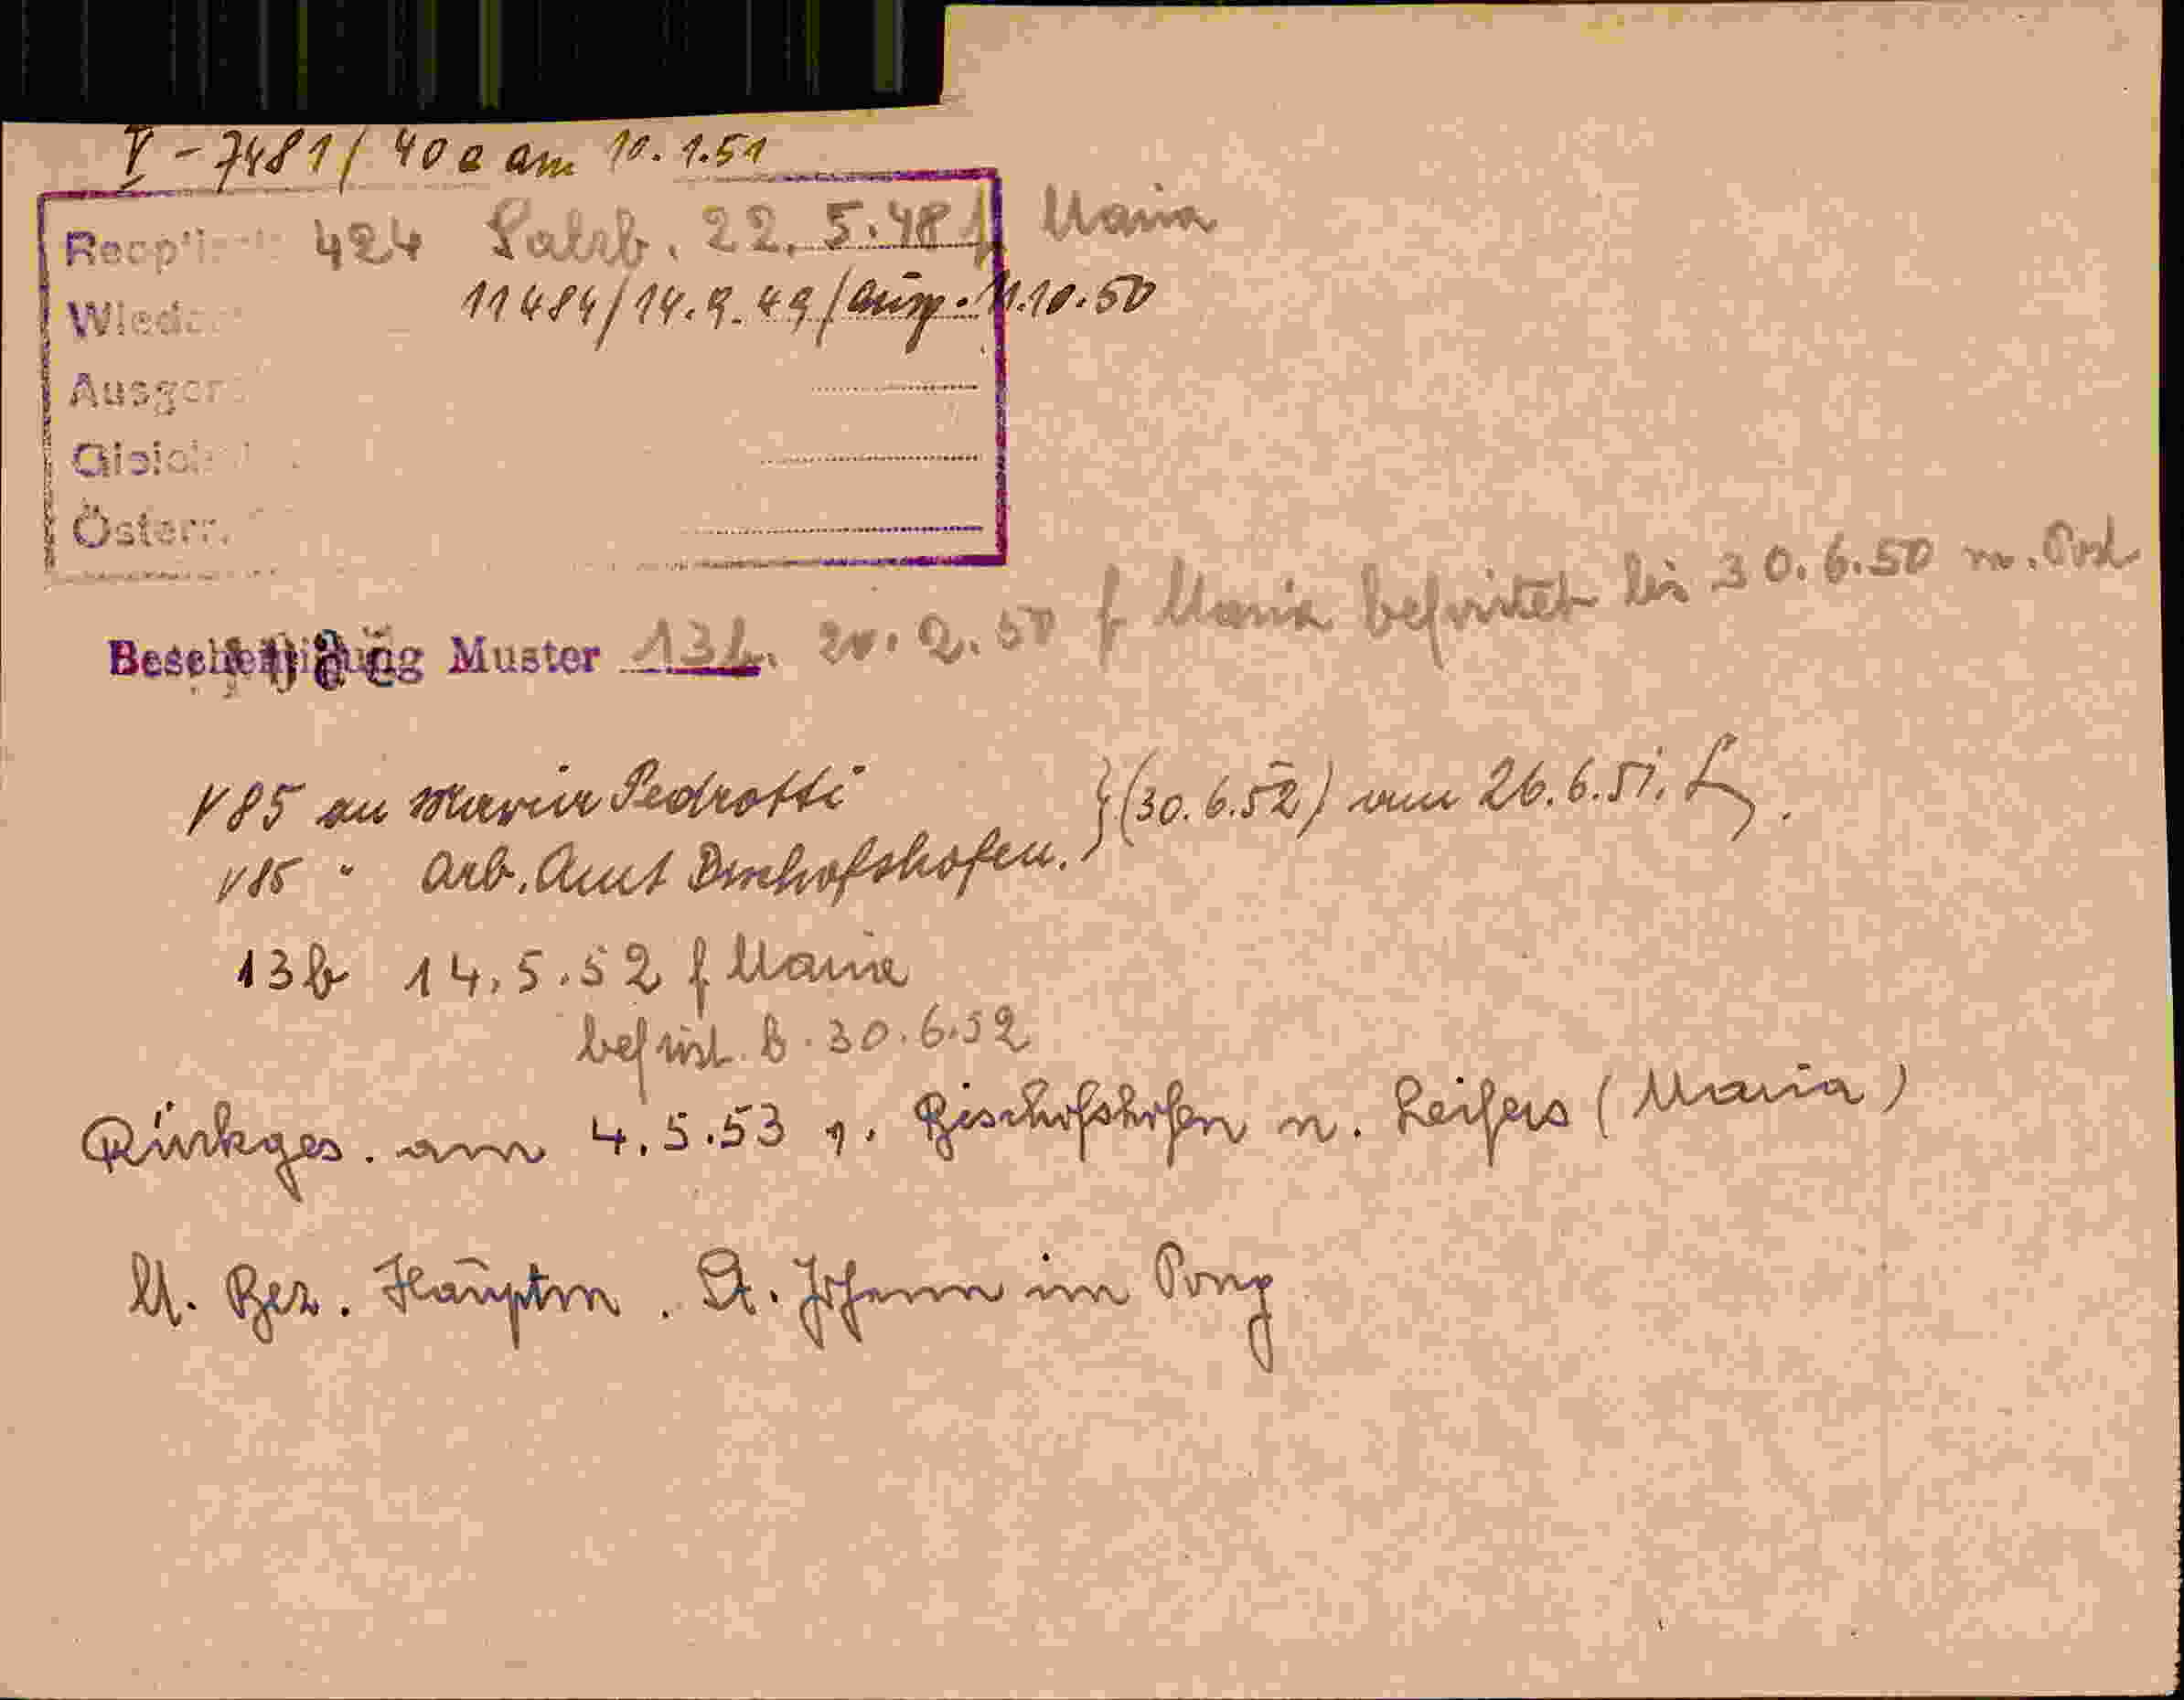 V - 7481/ 40a am 10.1.51
424 Salzb. 22. 5.48 f. Maria
11484/14.9.49/ausg. 11.10.50
Österr.
Bescheinigung Muster 13b. 20.2.50 f Maria befristet bis 30.6.50 m. Post
V85 an Maria Pedrotti } (30.6.52) vom 26.6.51.
V85 " Arb. Amt Bischofshofen.
13b 14.5.52 f Maria
befrist. b. 30.6.52
Rückges. am 4.5.53 v. Bischofshofen n. Leifers (Maria)
M. Bez. Hauptm. St. Johann im Pong